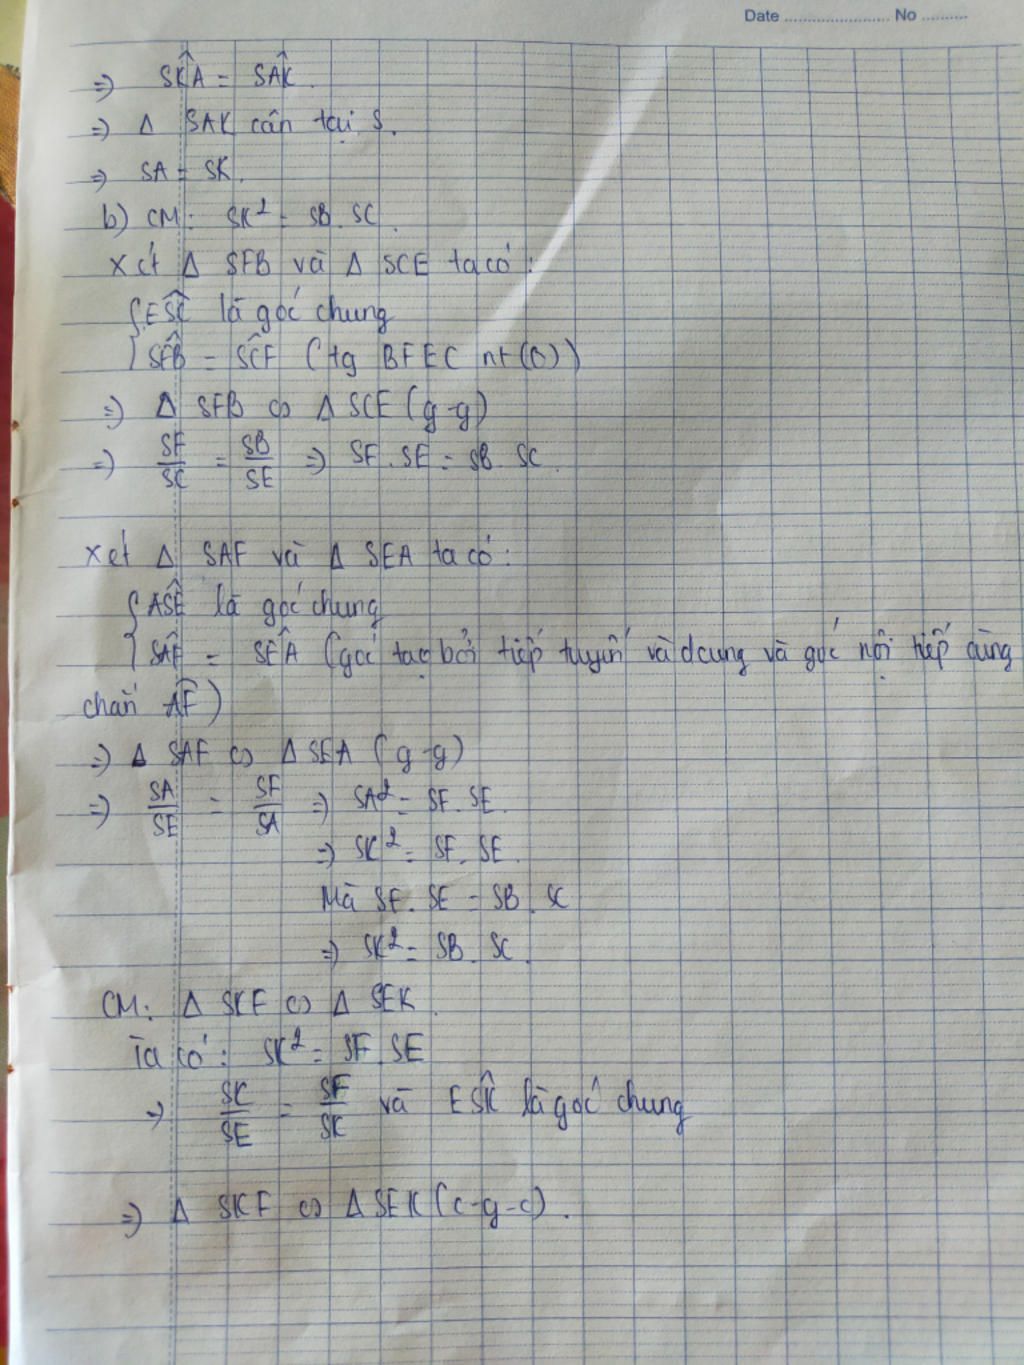 Date ........................ No ..........
=> SK̂A = SÂK.
=> Δ SAK cân tại S.
=> SA = SK.
b) CM: SK² = SB.SC.
Xét Δ SFB và Δ SCE ta có:
{ EŜC là góc chung
SF̂B = SĈE (tg BFEC nt (O))
=> Δ SFB ∽ Δ SCE (g-g)
=> SF/SC = SB/SE => SF.SE = SB.SC.
Xét Δ SAF và Δ SEA ta có:
{ AŜE là góc chung
SÂF = SÊA (góc tạo bởi tiếp tuyến và dcung và góc nội tiếp cùng
chắn AF)
=> Δ SAF ∽ Δ SEA (g-g)
=> SA/SE = SF/SA => SA² = SF.SE.
=> SK² = SF.SE.
Mà SF.SE = SB.SC
=> SK² = SB.SC.
CM: Δ SKF ∽ Δ SEK.
Ta có: SK² = SF.SE
=> SK/SE = SF/SK và EŜK là góc chung
=> Δ SKF ∽ Δ SEK (c-g-c).